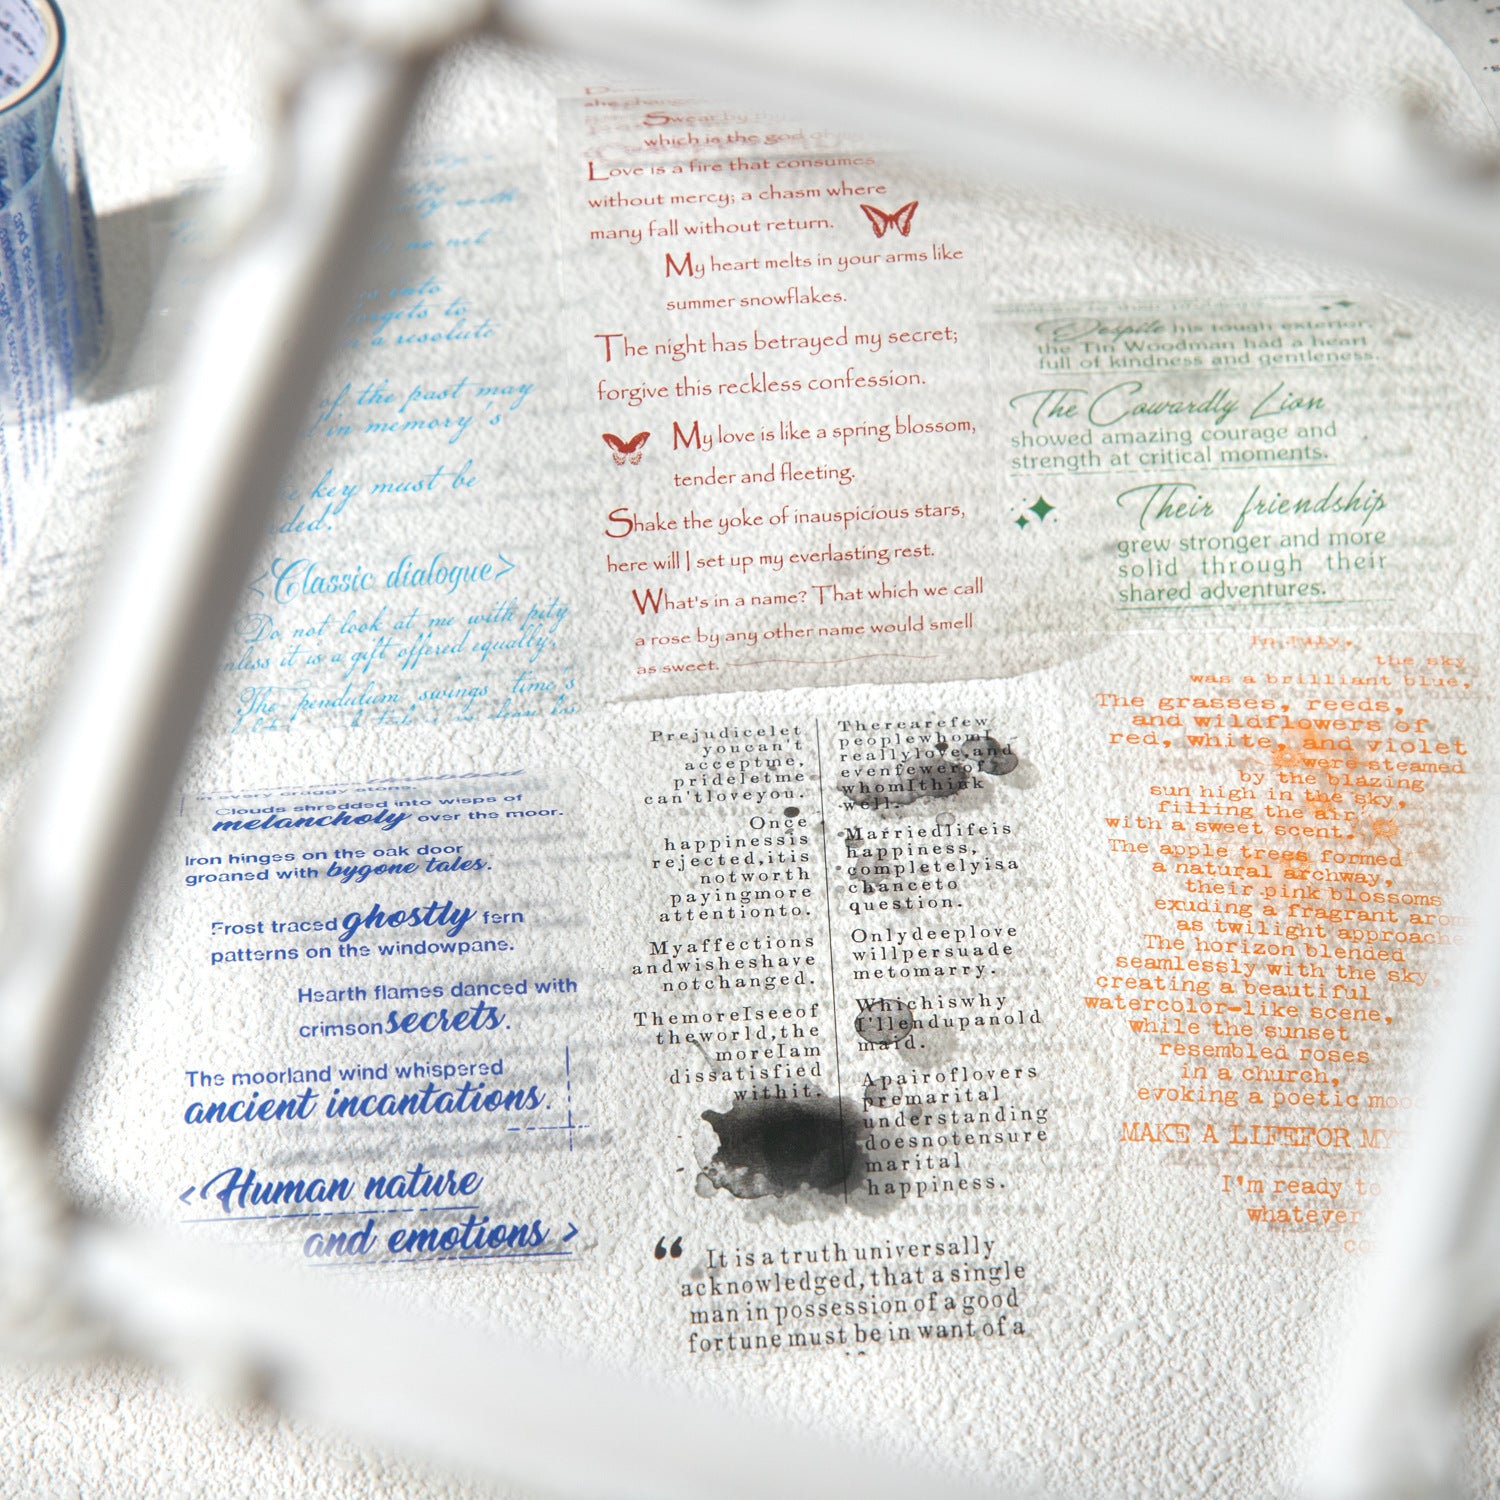 which is the god of my
Love is a fire that consumes
without mercy; a chasm where
many fall without return.
My heart melts in your arms like
summer snowflakes.
The night has betrayed my secret;
forgive this reckless confession.
My love is like a spring blossom,
tender and fleeting.
Shake the yoke of inauspicious stars,
here will I set up my everlasting rest.
What's in a name? That which we call
a rose by any other name would smell
as sweet.
into
forgets to
a resolute
of the past may
in memory's
key must be
<Classic dialogue>
Do not look at me with pity
unless it is a gift offered equally.
The pendulum swings, time's
Despite his tough exterior,
the Tin Woodman had a heart
full of kindness and gentleness.
The Cowardly Lion
showed amazing courage and
strength at critical moments.
Their friendship
grew stronger and more
solid through their
shared adventures.
in every craggy stone.
Clouds shredded into wisps of
melancholy over the moor.
Iron hinges on the oak door
groaned with bygone tales.
Frost traced ghostly fern
patterns on the windowpane.
Hearth flames danced with
crimson secrets.
The moorland wind whispered
ancient incantations.
<Human nature
and emotions>
Prejudicelet
youcan't
acceptme,
prideletme
can'tloveyou.
Once
happinessis
rejected,itis
notworth
payingmore
attentionto.
Myaffections
andwisheshave
notchanged.
ThemoreIseeof
theworld,the
moreIam
dissatisfied
withit.
Therearefew
peoplewhomI
reallylove,and
evenfewerof
whomIthink
well.
Marriedlifeis
happiness,
completelyisa
chanceto
question.
Onlydeeplove
willpersuade
metomarry.
Whichiswhy
I'llendupanold
maid.
Apairoflovers
premarital
understanding
doesnotensure
marital
happiness.
“ It is a truth universally
acknowledged, that a single
man in possession of a good
fortune must be in want of a
In July,
the sky
was a brilliant blue,
The grasses, reeds,
and wildflowers of
red, white, and violet
were steamed
by the blazing
sun high in the sky,
filling the air
with a sweet scent.
The apple trees formed
a natural archway,
their pink blossoms
exuding a fragrant
as twilight
The horizon blended
seamlessly with the sky,
creating a beautiful
watercolor-like scene,
while the sunset
resembled roses
in a church,
evoking a poetic
MAKE A LIFEFOR
I'm ready to
whatever